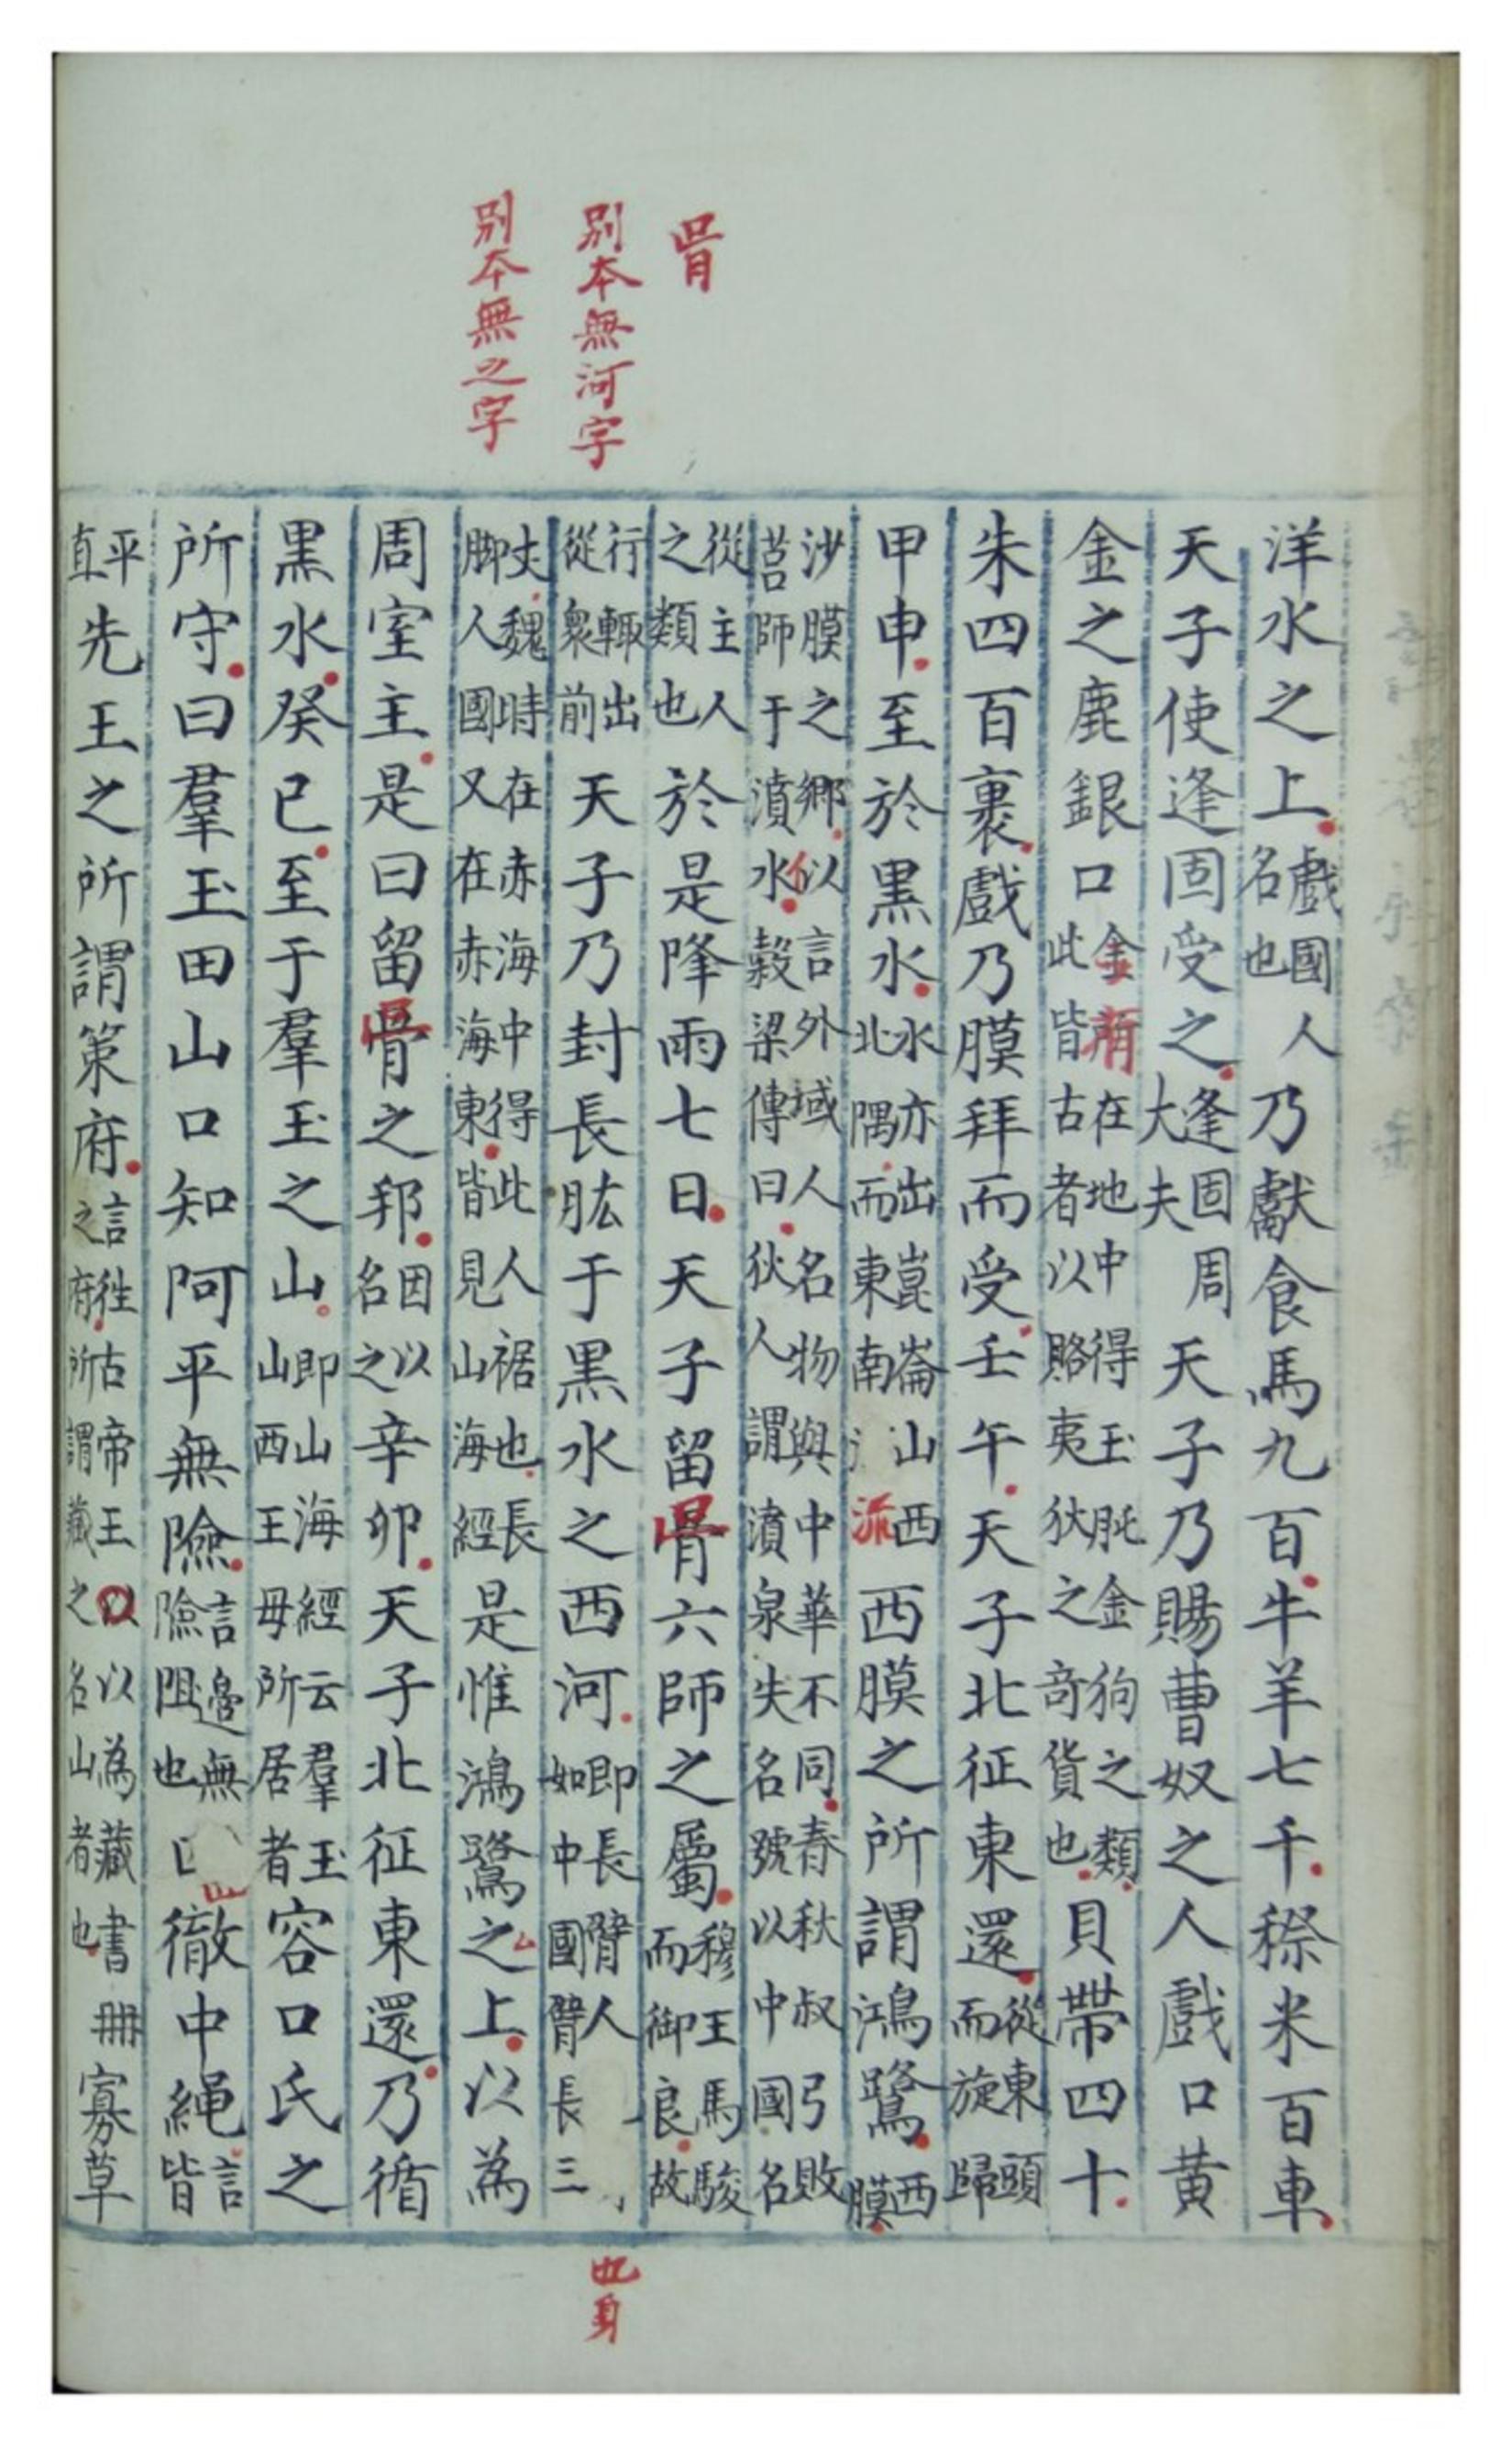 洋水之上戲國人名也乃獻食馬九百牛羊七千穄米百車
天子使逢固受之逢固周大夫天子乃賜曹奴之人戲口黃
金之鹿銀口金在地中得玉肫金狗之類此皆古者以賂夷狄之奇貨也貝帶四十
朱四百裹戲乃膜拜而受壬午天子北征東還從東頭而旋歸
甲申至於黑水水亦出崑崙山西北隅而東南流西膜之所謂鴻鷺西膜
沙膜之鄉以言外域人名物與中華不同春秋叔弓敗莒師于濆水穀梁傳曰狄人謂濆泉失名號以中國名
之從主人之類也於是降雨七日天子留骨六師之屬穆王馬駿而御良故
行輙出從衆前天子乃封長肱于黑水之西河即長臂人如中國臂長三
丈魏時在赤海中得此人裾也長脚人國又在赤海東皆見山海經是惟鴻鷺之上以為
周室主是曰留骨之邦因以名之辛卯天子北征東還乃循
黑水癸巳至于羣玉之山即山海經云羣玉山西王毋所居者容口氏之
所守曰羣玉田山口知阿平無險言邊無險阻也徹中繩言皆
平直先王之所謂策府言徃古帝王以以為藏書冊之府所謂藏之名山者也寡草
䯊
別本無河字
別本無之字
身